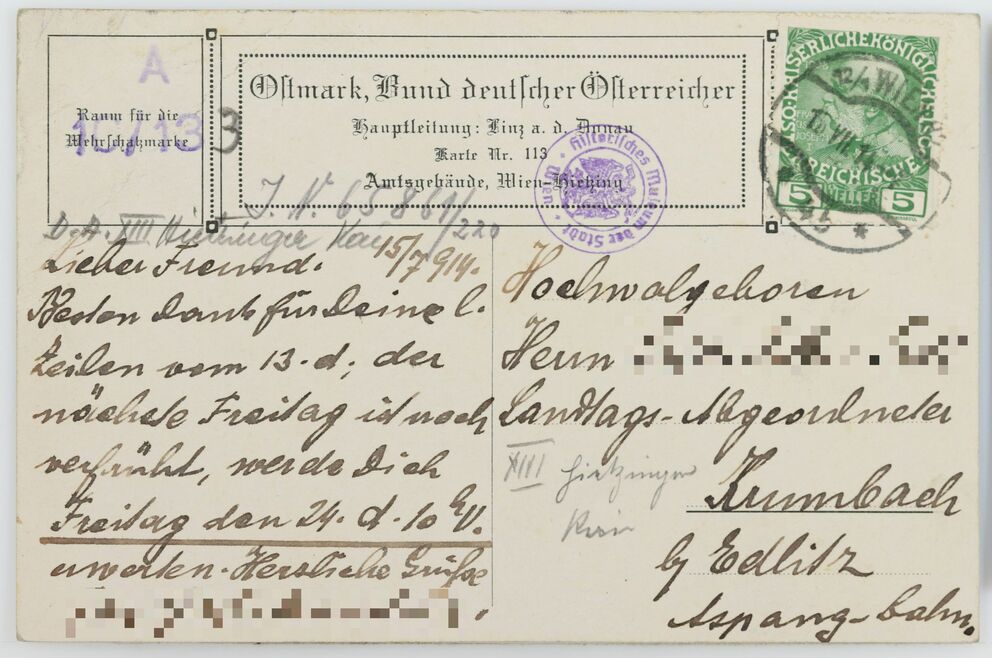 A
Raum für die
Wehrschatzmarke
15/13 3
Ostmark, Bund deutscher Österreicher
Hauptleitung: Linz a. d. Donau
Karte Nr. 113
Amtsgebände, Wien-Hietzing
Historisches Museum der Stadt Wien
KAISERLICHE KÖNIGLICHE ÖSTERREICHISCHE
5 HELLER 5
12/1 WIEN
J. N. 65861/220
D. A. XIII Hietzinger Kai
15/7 914.
Lieber Freund.
Besten Dank für Deine l.
Zeilen vom 13. d; der
nächste Freitag ist noch
verfrüht, werde Dich
Freitag den 24. d. 10 Uh.
erwarten. Herzliche Grüße
Hochwolgeboren
Herrn
Landtags-Abgeordneter
XIII Hietzinger
Kai
Krumbach
by Edlitz
Aspang-bahn.